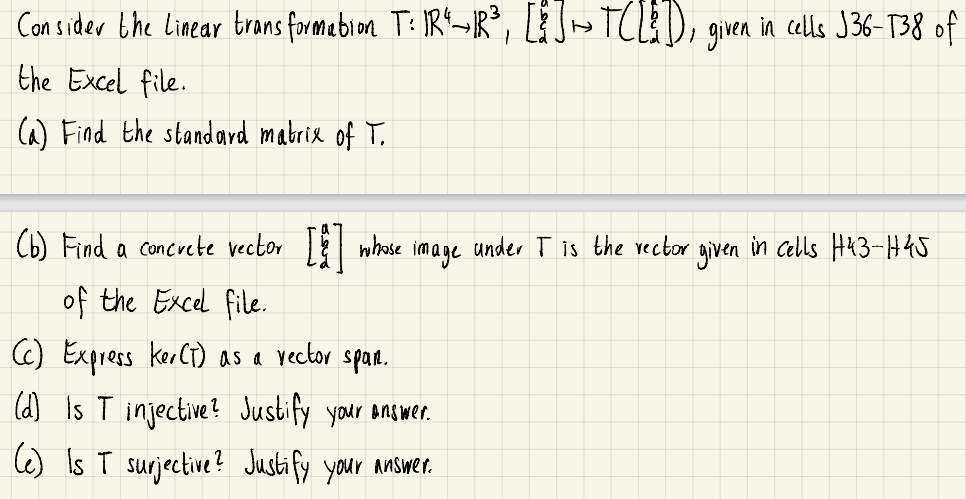 Consider the linear transformation T: ℝ⁴→ℝ³, [a b c d] ↦ T([a b c d]), given in cells J36-T38 of
the Excel file.
(a) Find the standard matrix of T.
(b) Find a concrete vector [a b c d] whose image under T is the vector given in cells H43-H45
of the Excel file.
(c) Express ker(T) as a vector span.
(d) Is T injective? Justify your answer.
(e) Is T surjective? Justify your answer.